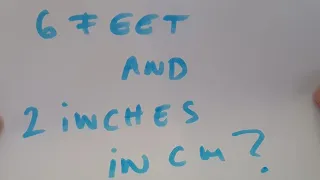 6 FEET
AND
2 iNCHES
iN CM?